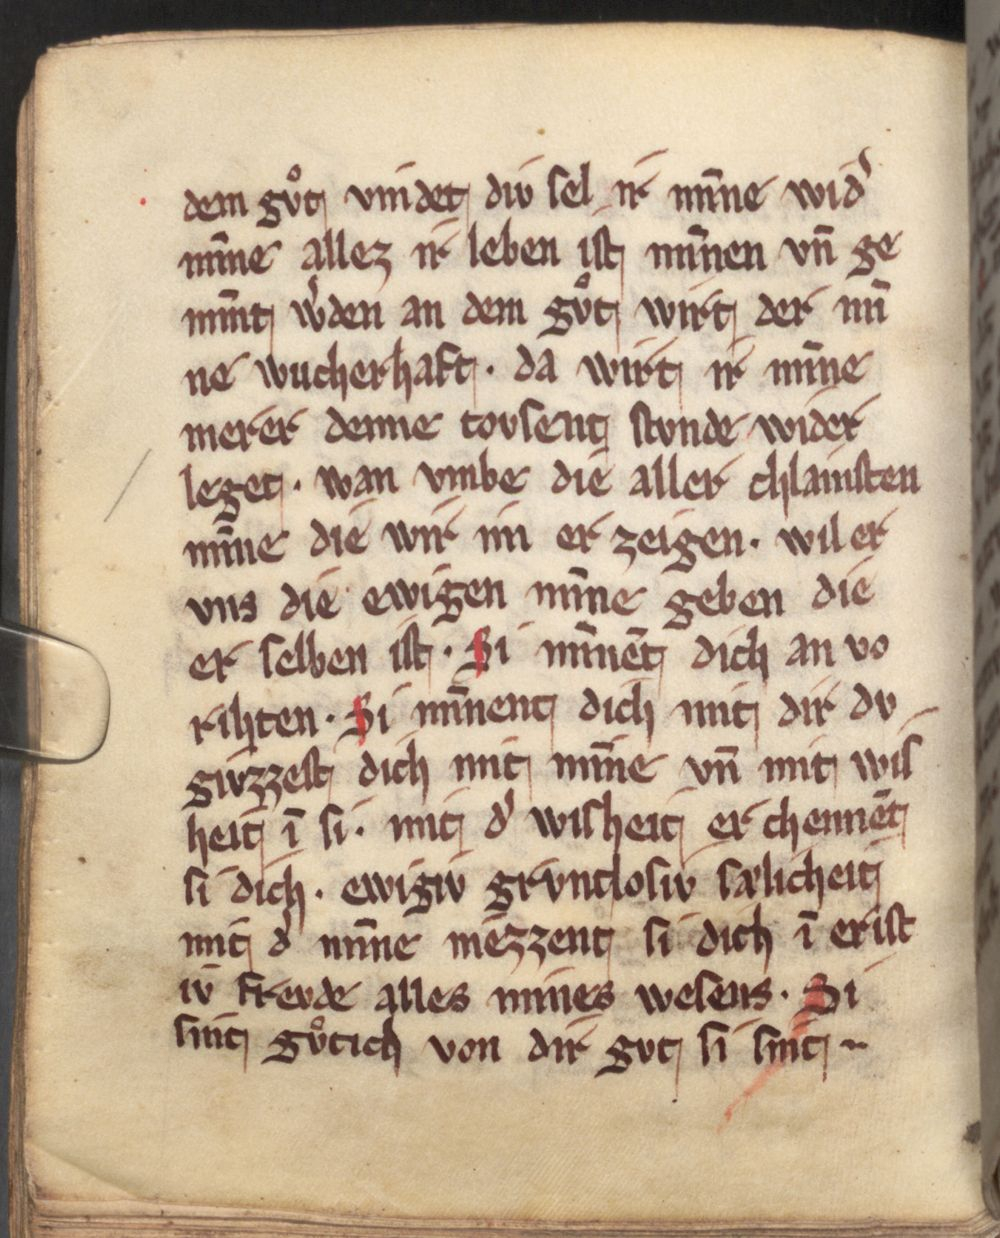 dem gvͦt vindet div sel ir mīne wid᾽
mīne allez ir leben ist mīnen vn̄ ge
mīnt w᾽den an dem gvͦt wirt der mī
ne wucherhaft · da wirt ir mīne
merer denne tovsent stvnde wider
leget · wan vmbe die aller chlainsten
mīne die wir im er zeigen · wil er
vns die ewigen mīne geben die
er selben ist · Si mīnēt dich an vo
rihten · Si mīnent dich mit dir dv
givzzest dich mit mīne vn̄ mit wis
heit ī si · mit d᾽ wisheit er chennēt
si dich · ewigiv grvntlosiv sælicheit
mit d᾽ mīne mezzent si dich ī er ist
iv frevde alles mines wesens · Si
sint gvͦtich von dir gvt si sint ~